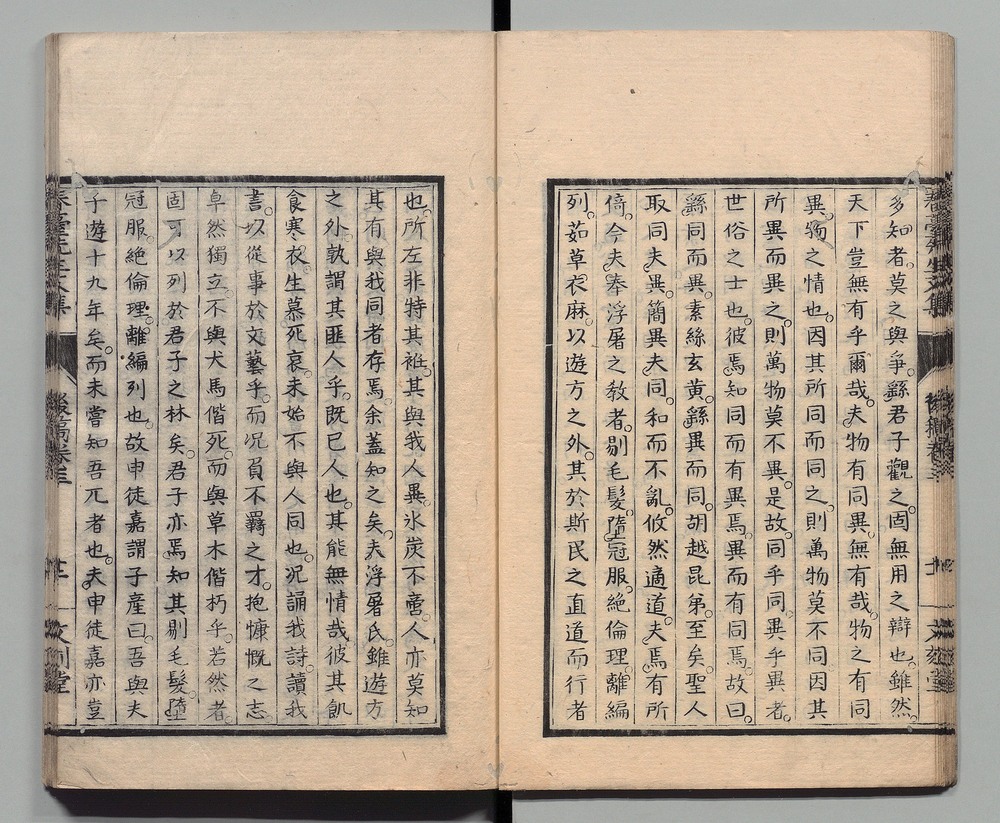 多知者。莫之與爭。繇君子觀之。固無用之辯也。雖然。
天下豈無有乎爾哉。夫物有同異。無有哉。物之有同
異。物之情也。因其所同而同之。則萬物莫不同。因其
所異而異之。則萬物莫不異。是故。同乎同。異乎異者。
世俗之士也。彼焉知同而有異焉。異而有同焉。故曰。
繇同而異。素絲玄黃。繇異而同。胡越昆弟。至矣。聖人
取同夫異。簡異夫同。和而不亂。攸然適道。夫焉有所
倚。今夫奉浮屠之教者。剔毛髮。墮冠服。絕倫理。離編
列。茹草衣麻。以遊方之外。其於斯民之直道而行者
也。所左非特其袵。其與我人異。氷炭不啻。人亦莫知
其有與我同者存焉。余蓋知之矣。夫浮屠氏。雖遊方
之外。孰謂其匪人乎。既已人也。其能無情哉。彼其飢
食寒衣。生慕死哀。未始不與人同也。况誦我詩。讀我
書。以從事於文藝乎。而况負不羈之才。抱慷慨之志
卓然獨立。不與犬馬偕死。而與草木偕朽乎。若然者。
固可以列於君子之林矣。君子亦焉知其剔毛髮。墮
冠服。絕倫理。離編列也。故申徒嘉謂子產曰。吾與夫
子遊十九年矣。而未嘗知吾兀者也。夫申徒嘉亦豈
後稿卷三